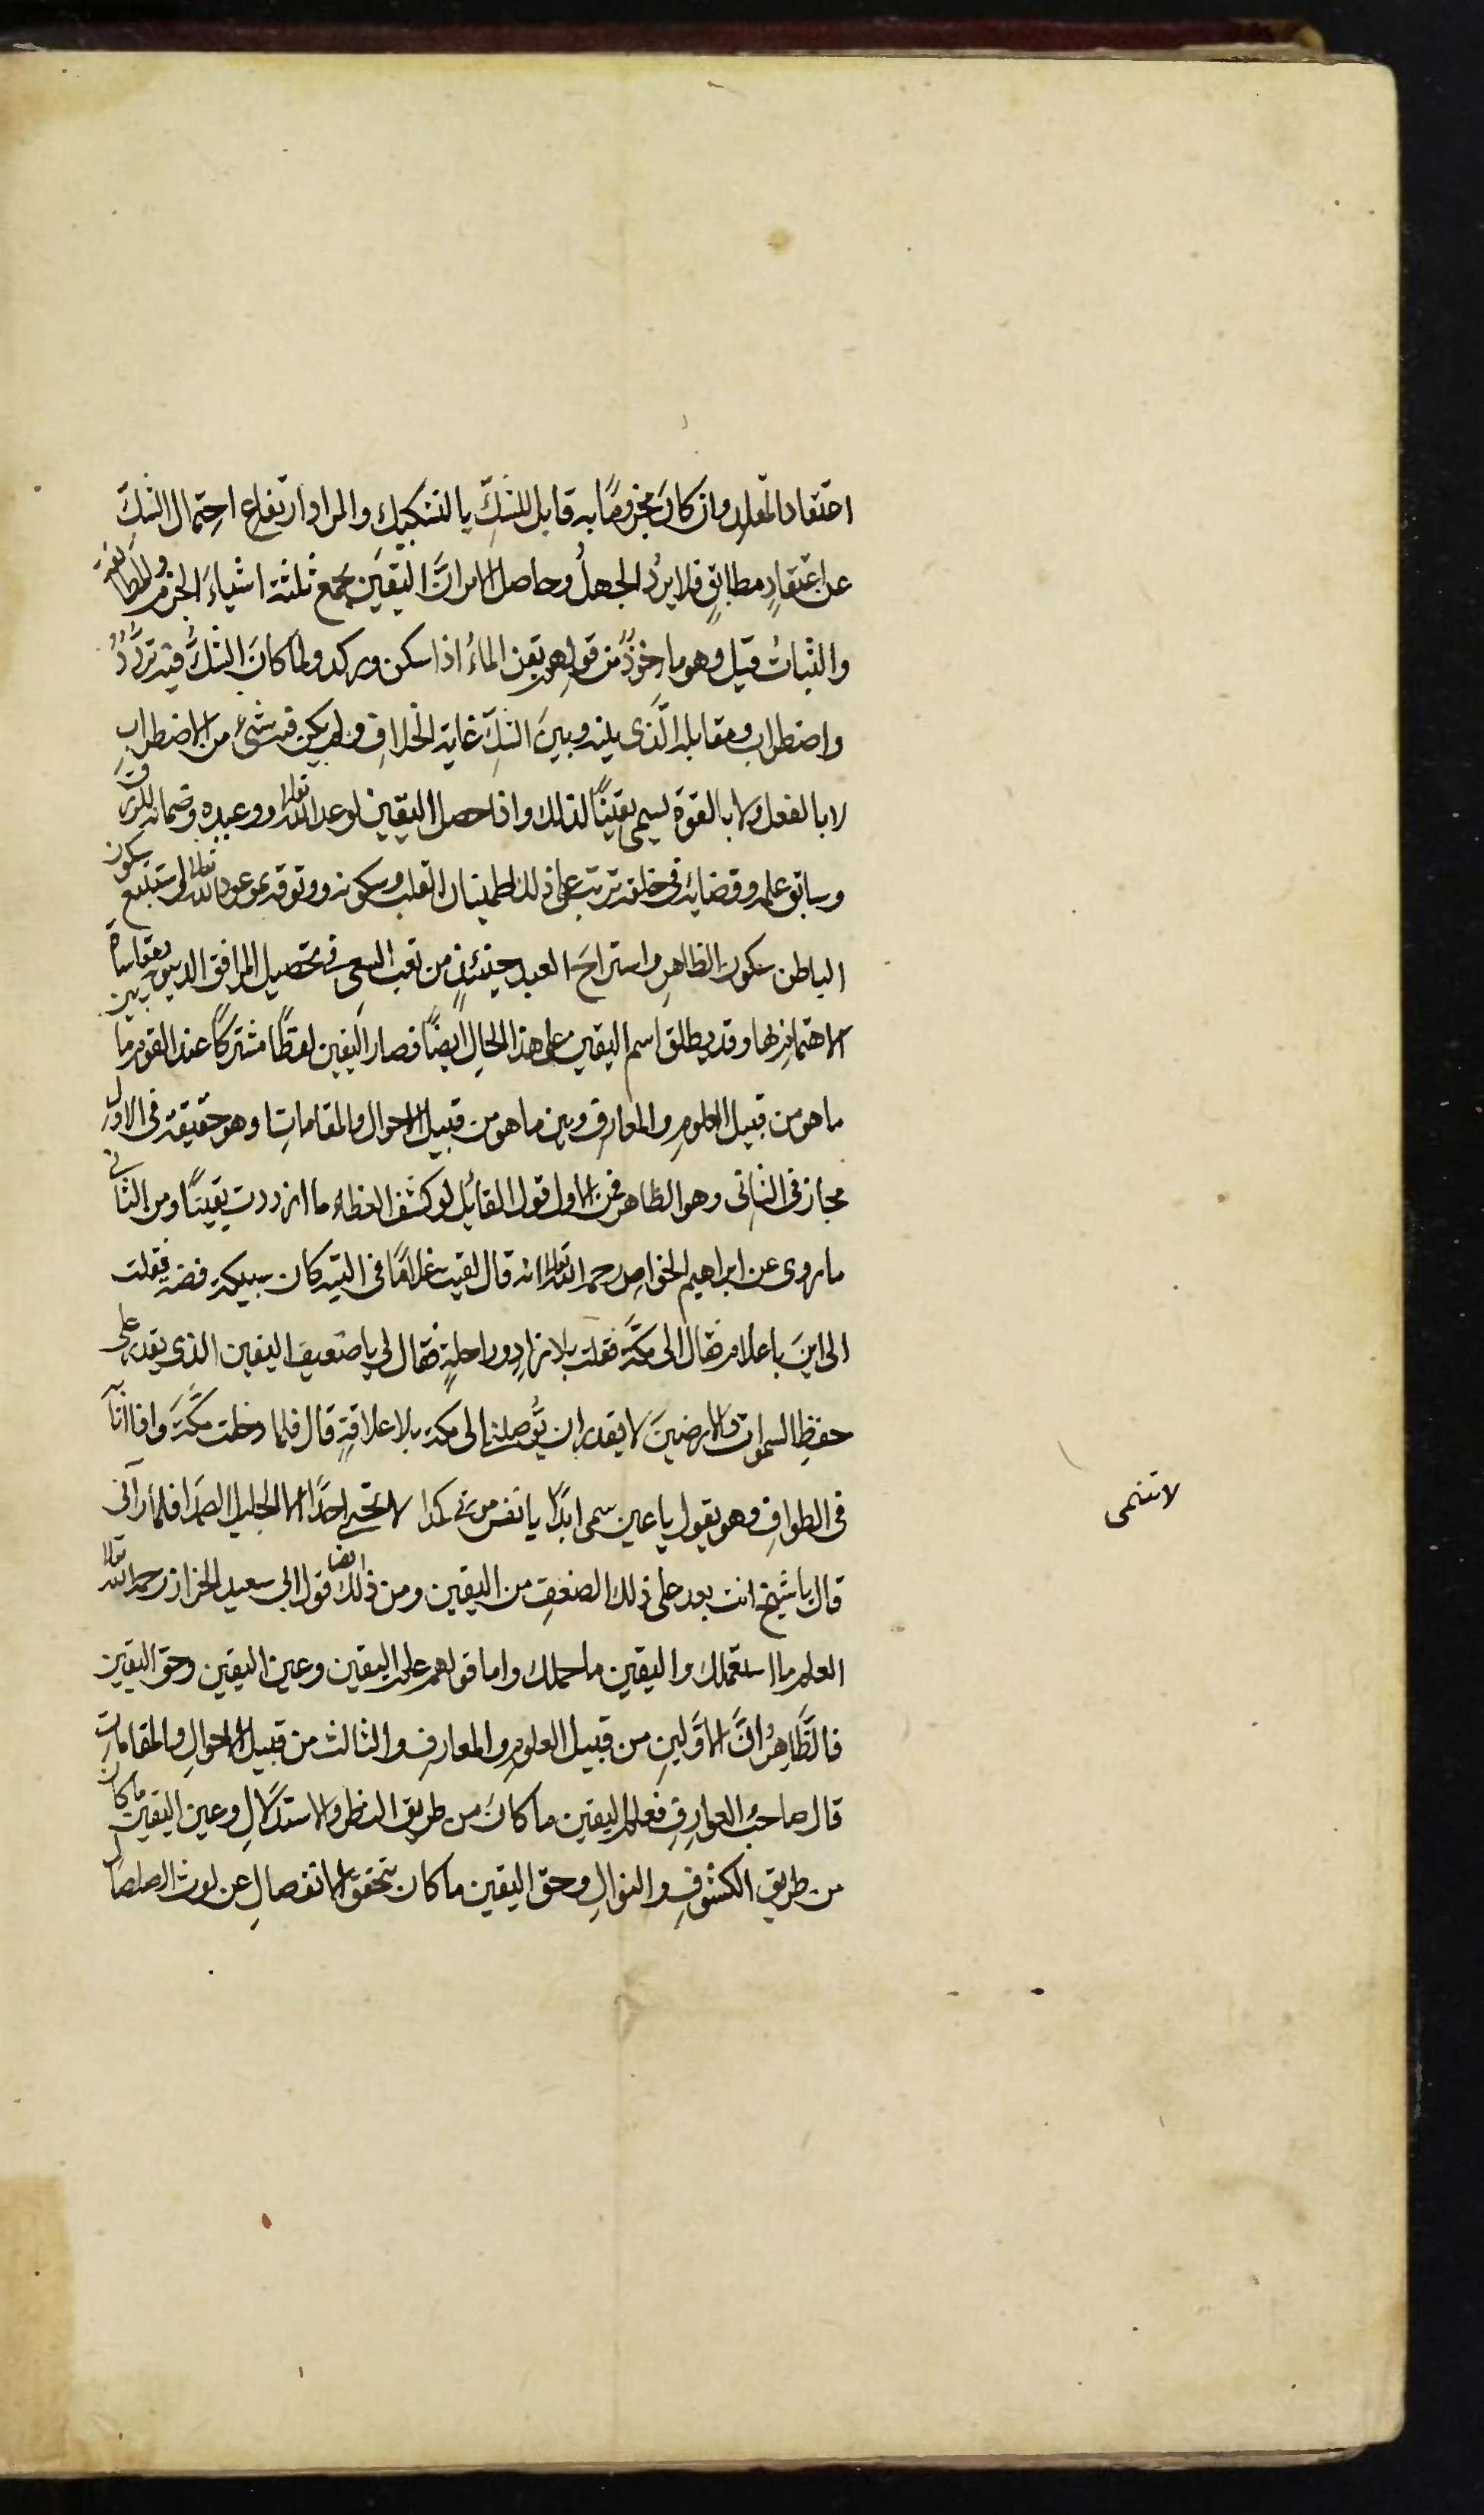 اعتقاد المقلد وان كانَ مجزومًا به قابل للشكِّ بالتشكيكِ والمراد ارتفاع احتمال الشكِّ
عن اعتقادٍ مطابقٍ فلا يردُ الجهلُ وحاصل الامر انَّ اليقينَ جمع ثلثة اشياءَ الجزم والمطابقة
والثباتُ قيل وهو ماخوذٌ من قولهم يقن الماءُ اذا سكن وركد ولما كانَ الشكُّ فيه تردُّدٌ
واضطراب ومقابله الَّذى بينه وبينَ الشكِّ غاية الخلافِ ولم يكن فيه شئ من الاضطرابِ
لا بالفعل ولا بالقوة يسمى يقينًا لذلك واذا حصل اليقين لوعد الله تعالى ووعيده وضمانه للرزق
وسابق علمه وقضائه فى خلقه ترتب على ذلك اطمينان القلب وسكونه ووثوقه بموعود الله تعالى يستتبع سكون
الباطن سكون الظاهرِ واستراحَ العبد حينئذٍ من تعب السعىِ فى تحصيل المرافق الدنيوية ومقاساة
الاهتمام لها وقد يطلق اسم اليقين على هذا الحالِ ايضًا فصار اليقين لفظًا مشتركًا عند القوم بين ما
ما هو من قبيل العلومِ والمعارفِ وبين ما هو من قبيل الاحوال والمقاماتِ وهو حقيقة فى الاول
مجاز فى الثانى وهو الظاهر فمن الاول قول القائل لو كشف الغطاء ما ازددت يقينًا ومن الثانى
ما روى عن ابراهيم الخواص رحمه الله تعالى انه قال لقيت غلامًا فى التيه كان سبيكة فضة فقلت
الى اينَ يا غلام فقال الى مكَّةَ فقلت بلا زادٍ وراحلةٍ فقال لى يا ضعيف اليقين الذى يقدر على
حفظِ السموات والارضينَ لا يقدر ان يُّوصلنى الى مكة بلا علاقةٍ قال فلما دخلت مكَّةَ واذا انا
فى الطوافِ وهو يقول يا عين سحى ابدًا يا نفس موتى كمدا لا تحبى احدًا الا الجليل الصمدا فلما رآنى
قال يا شيخ انت بعد على ذلك الضعفِ من اليقين ومن ذلك ايضا قول ابى سعيد الخراز رحمه الله تعالى
العلم ما استعملك واليقين ما حملك واما قولهم علم اليقين وعين اليقين وحق اليقين
فالظَّاهرُ انَّ الاوَّلينِ من قبيل العلومِ والمعارفِ والثالث من قبيل الاحوالِ والمقامات
قال صاحبُ العوارِفِ فعلم اليقين ما كانَ من طريق النظر والاستدلالِ وعين اليقين ما كان
من طريق الكشوفِ والنوالِ وحق اليقين ما كان بتحقق الانفصالِ عن لوث الصلصال